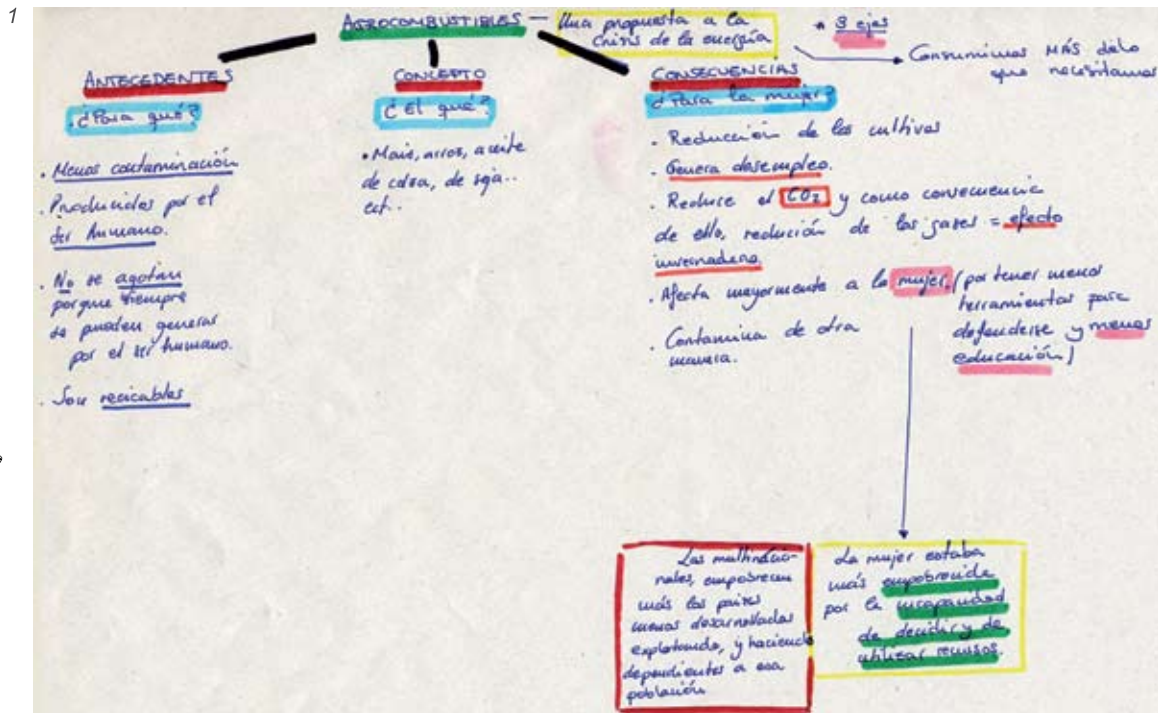 1
AGROCOMBUSTIBLES — Una propuesta a la
crisis de la energía
* 3 ejes
Consumimos MÁS de lo
que necesitamos
ANTECEDENTES
¿Para qué?
. Menos contaminación
. Producidos por el
ser humano.
. No se agotan
porque siempre
se pueden generar
por el ser humano.
. Son recicables
CONCEPTO
¿El qué?
• Mais, arros, aceite
de colza, de soja..
ect..
CONSECUENCIAS
¿Para la mujer?
. Reducción de los cultivos
. Genera desempleo.
. Reduce el CO2 y como consecuencia
de ello, redución de los gases = efecto
invernadero.
. Afecta mayormente a la mujer, (por tener menos
herramientas para
defenderse y menos
educación)
. Contamina de otra
manera.
Las multinacio-
nales, empobrecen
más los países
menos desarrollados
explotando, y haciendo
dependientes a esa
población
La mujer estaba
más empobrecida
por la incapacidad
de decidir y de
utilizar recursos.